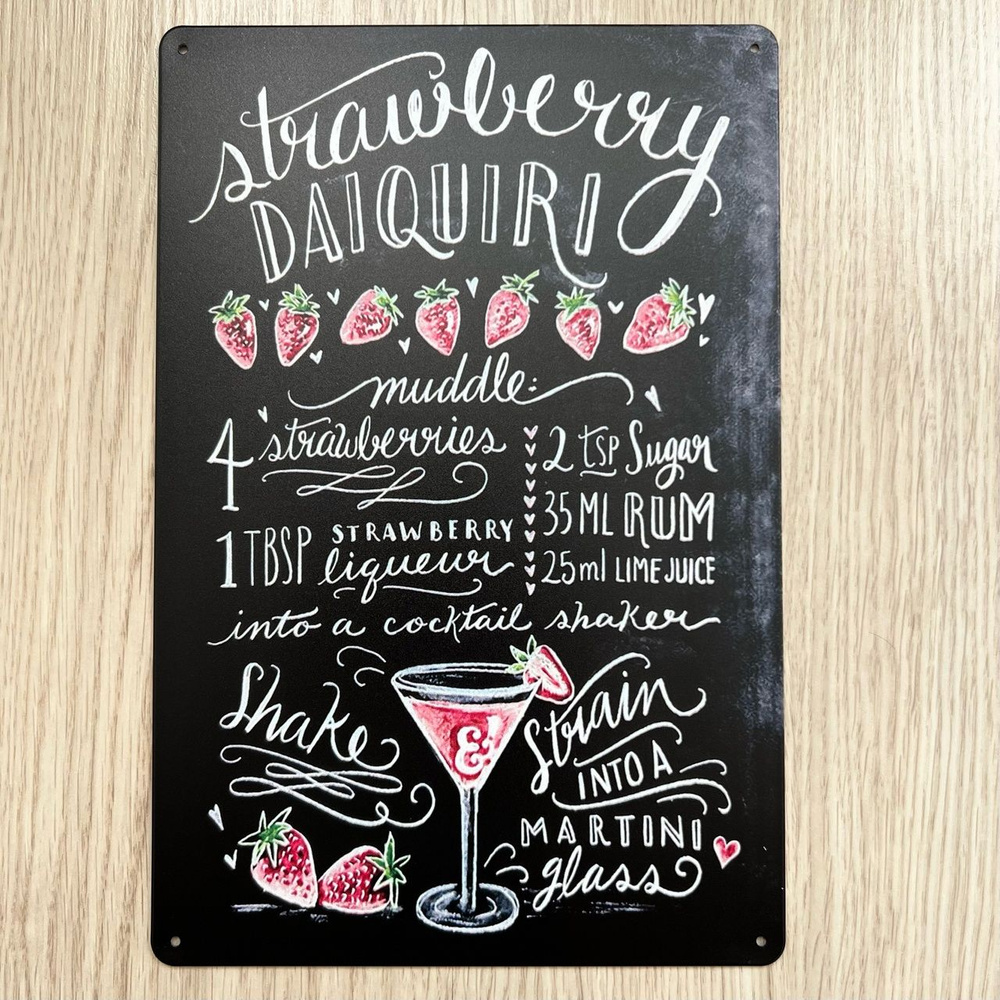 strawberry
DAIQUIRI
muddle:
4 strawberries
1 TBSP STRAWBERRY
liqueur
2 TSP Sugar
35 ML RUM
25ml LIME JUICE
into a cocktail shaker
Shake
&
Strain
INTO A
MARTINI
glass